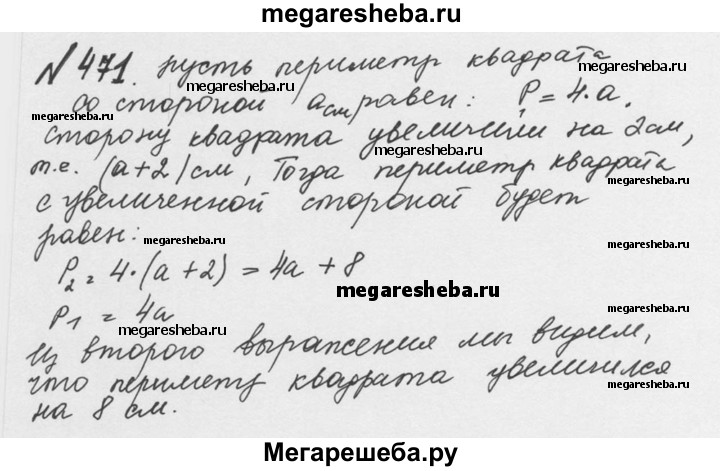 megaresheba.ru
№ 471. пусть периметр квадрата
megaresheba.ru
megaresheba.ru
со стороной а см равен: P = 4·а.
megaresheba.ru
сторону квадрата увеличили на 2 см,
megaresheba.ru
т.е. (а+2) см, Тогда периметр квадрата
megaresheba.ru
с увеличенной стороной будет
равен: megaresheba.ru
megaresheba.ru
P₂ = 4·(а+2) = 4а + 8
megaresheba.ru
P₁ = 4а
megaresheba.ru
megaresheba.ru
Из второго выражения мы видим,
megaresheba.ru
что периметр квадрата увеличился
megaresheba.ru
на 8 см.
Мегарешеба.ру